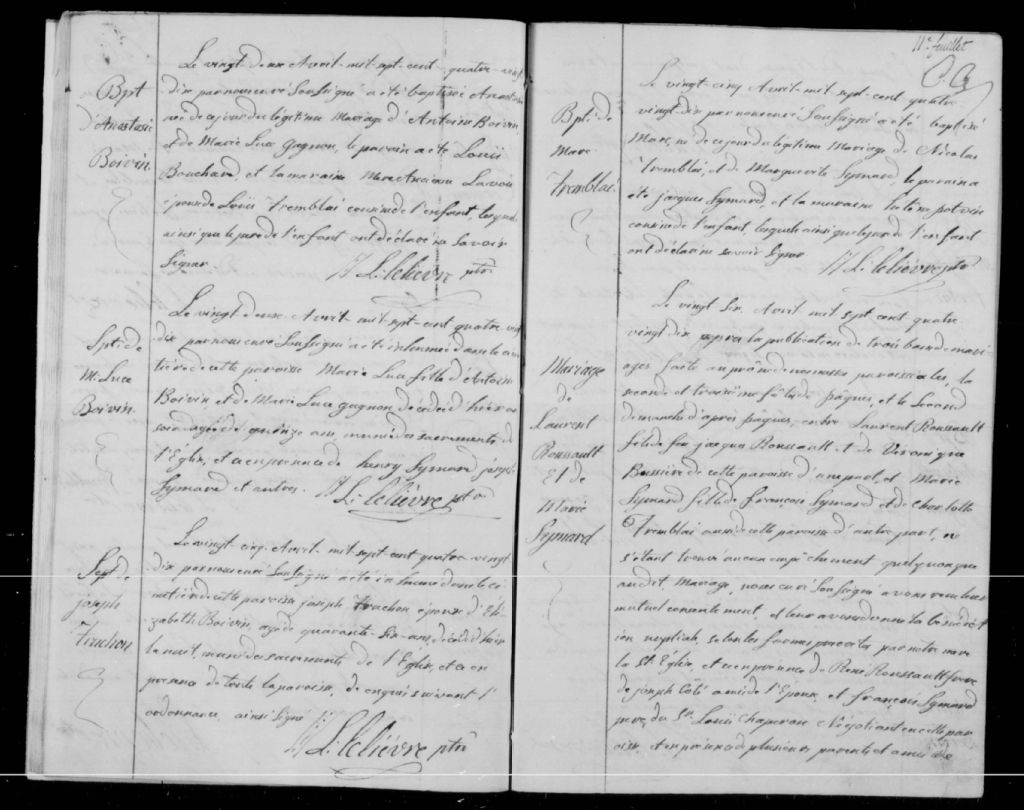 Le vingt-deux Avril mil-sept-cent-quatre-vingt
dix par nous curé Soussigné a été baptisée Anastasie
née de ce jour du légitime Mariage d'Antoine Boivin
et de Marie Luce Gagnon, le parain a été Louis
Bouchard, et la maraine Lavoie
épouse de Louis Tremblai cousine de l'enfant, lesquels
ainsi que le pere de l'enfant ont déclaré ne Savoir
Signer
L. Lelièvre ptre
Bpt
d'Anastasie
Boivin.
Le vingt-deux Avril mil-sept-cent quatre vingt
dix par nous curé Soussigné a été inhumée dans le cime
tière de cette paroisse Marie Luce fille d'Antoine
Boivin et de Marie Luce gagnon décédée d'hier au
soir agée de quinze ans, munie des sacrements de
l'Eglise, et a en presence de henry Symard joseph
Symard et autres. L. Lelièvre ptre
Spt. de
M. Luce
Boivin.
Le vingt-cinq Avril mil-sept-cent quatre-vingt
dix par nous curé Soussigné a été inhumé dans le ci
metière de cette paroisse joseph Truchon époux d'Eli
zabeth Boivin, agé de quarante-six-ans, décédé hier
la nuit, muni des sacrements de l'Eglise, et a en
presence de toute la paroisse, de en qui suivant l'
ordonnance, ainsi signé
L. Lelièvre ptre
Sept. de
joseph
Truchon
11e feuillet
Le vingt-cinq Avril mil sept cent quatre
vingt-dix par nous curé Soussigné a été baptisé
Marc, né de ce jour du légitime Mariage de Nicolas
Tremblai, et de Marguerite Symard, le parain a
été jacques Symard, et la maraine potvin
cousine de l'enfant, lesquels ainsi que le pere de l'enfant
ont déclaré ne savoir signer
L. Lelièvre ptre
Bpt. de
Marc
Tremblai
Le vingt Six Avril mil sept cent quatre
vingt-dix après la publication de trois bans de mari
ages faite au prône de nos messes paroissiales, la
seconde et troisième fête de Pâques, et le Second
dimanche d'après pâques, entre Laurent Roussault
fils de feu jacques Roussault et de Véronique
Bussière de cette paroisse d'une part, et Marie
Symard fille de françois Symard et de charlotte
Tremblai aussi de cette paroisse d'autre part, ne
s'étant trouvé aucun empêchement quelconque
audit Mariage, nous curé Soussigné avons reçu leur
mutuel consentement, et leur avons donné la bénédict
ion nuptiale, selon les formes prescrites par notre mere
la Ste Eglise, et a en présence de René Roussault frere
de joseph Côté ami de l'Epoux, et françois Symard
pere, du Sr Louis chaperon Négotiant en cette par
oisse, et en présence de plusieurs parents et amis de
Mariage
de
Laurent
Roussault
Et de
Marie
Symard